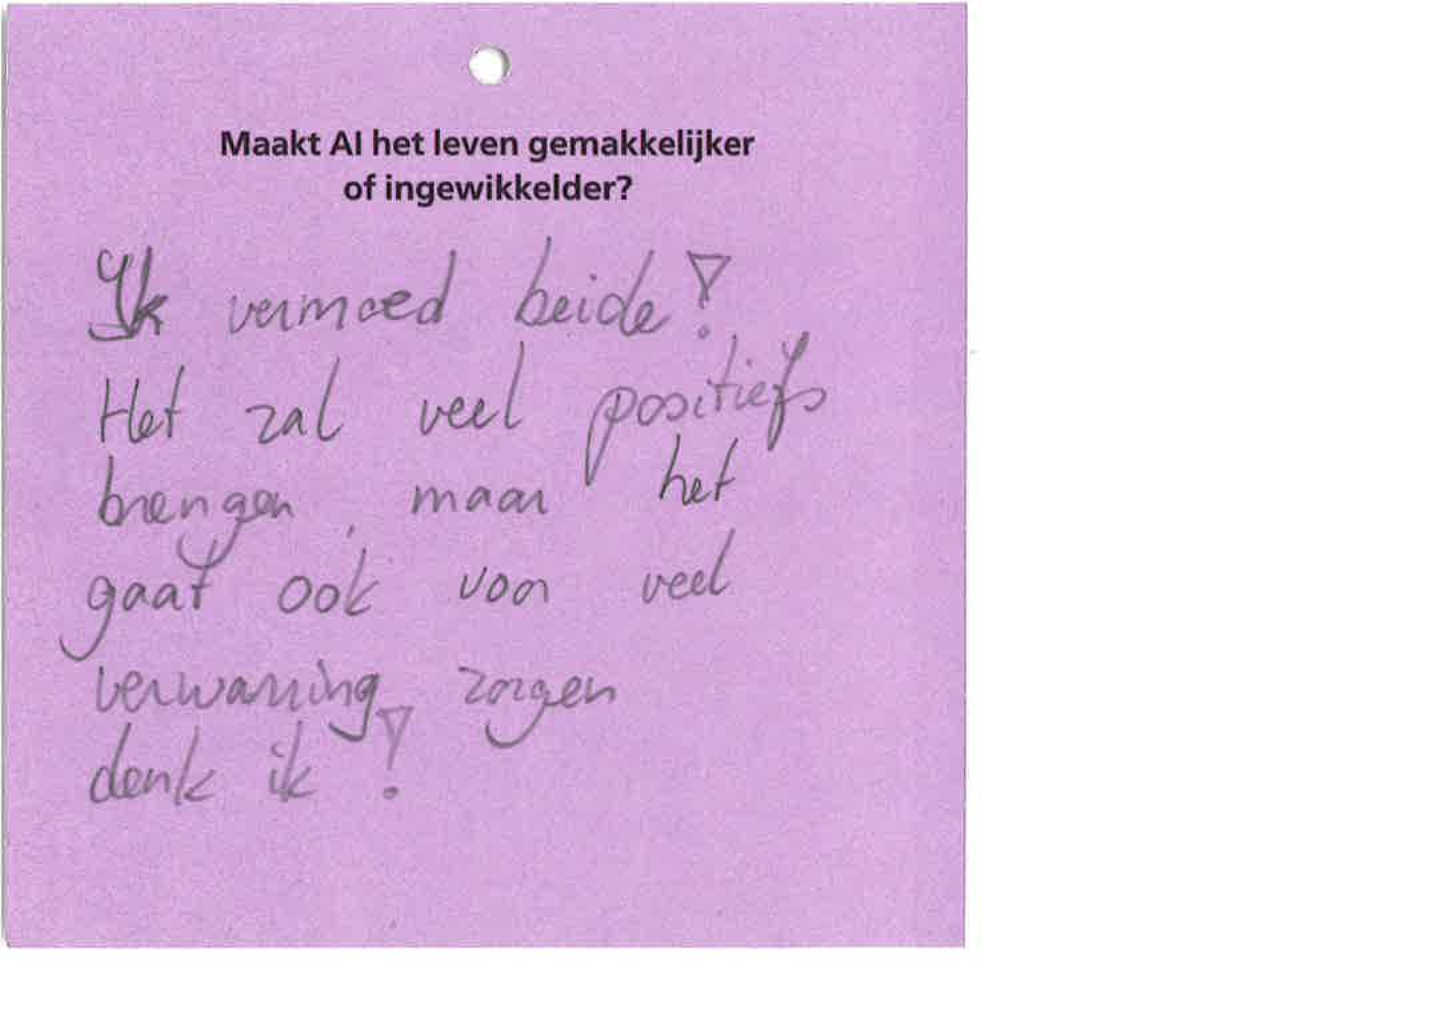 Maakt AI het leven gemakkelijker
of ingewikkelder?
Ik vermoed beide!
Het zal veel positiefs
brengen, maar het
gaat ook voor veel
verwarring zorgen
denk ik!